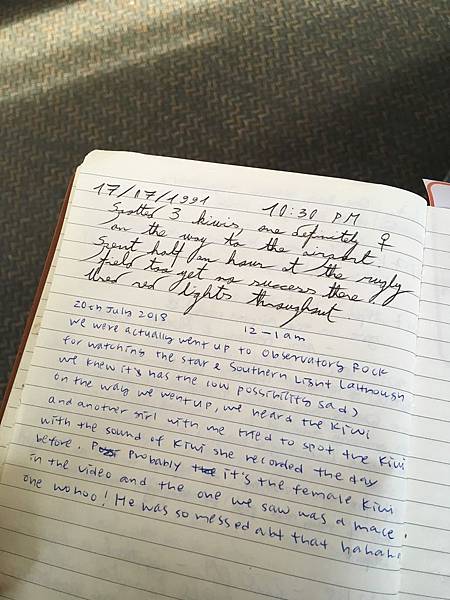 17/07/1991 10:30 PM
Spotted 3 kiwis, one definitely ♀
on the way to the airport
Spent half an hour at the rugby
field too yet no success there
Used red lights throughout
20th July 2018 12-1am
We were actually went up to Observatory Rock
for watching the star & Southern Light (although
we knew it's has the low possibility sad)
on the way we went up, we heard the kiwi
and another girl with me tried to spot the kiwi
with the sound of kiwi she recorded the day
before. Probably it's the female kiwi
in the video and the one we saw was a mace.
one wohoo! He was so messed abt that hahaha